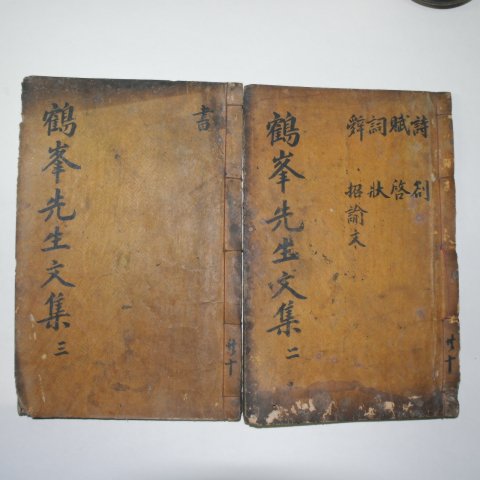 詩 劄
賦 啓
詞 狀
辤 招諭文
鶴峯先生文集 二
共十
書
鶴峯先生文集 三
共十